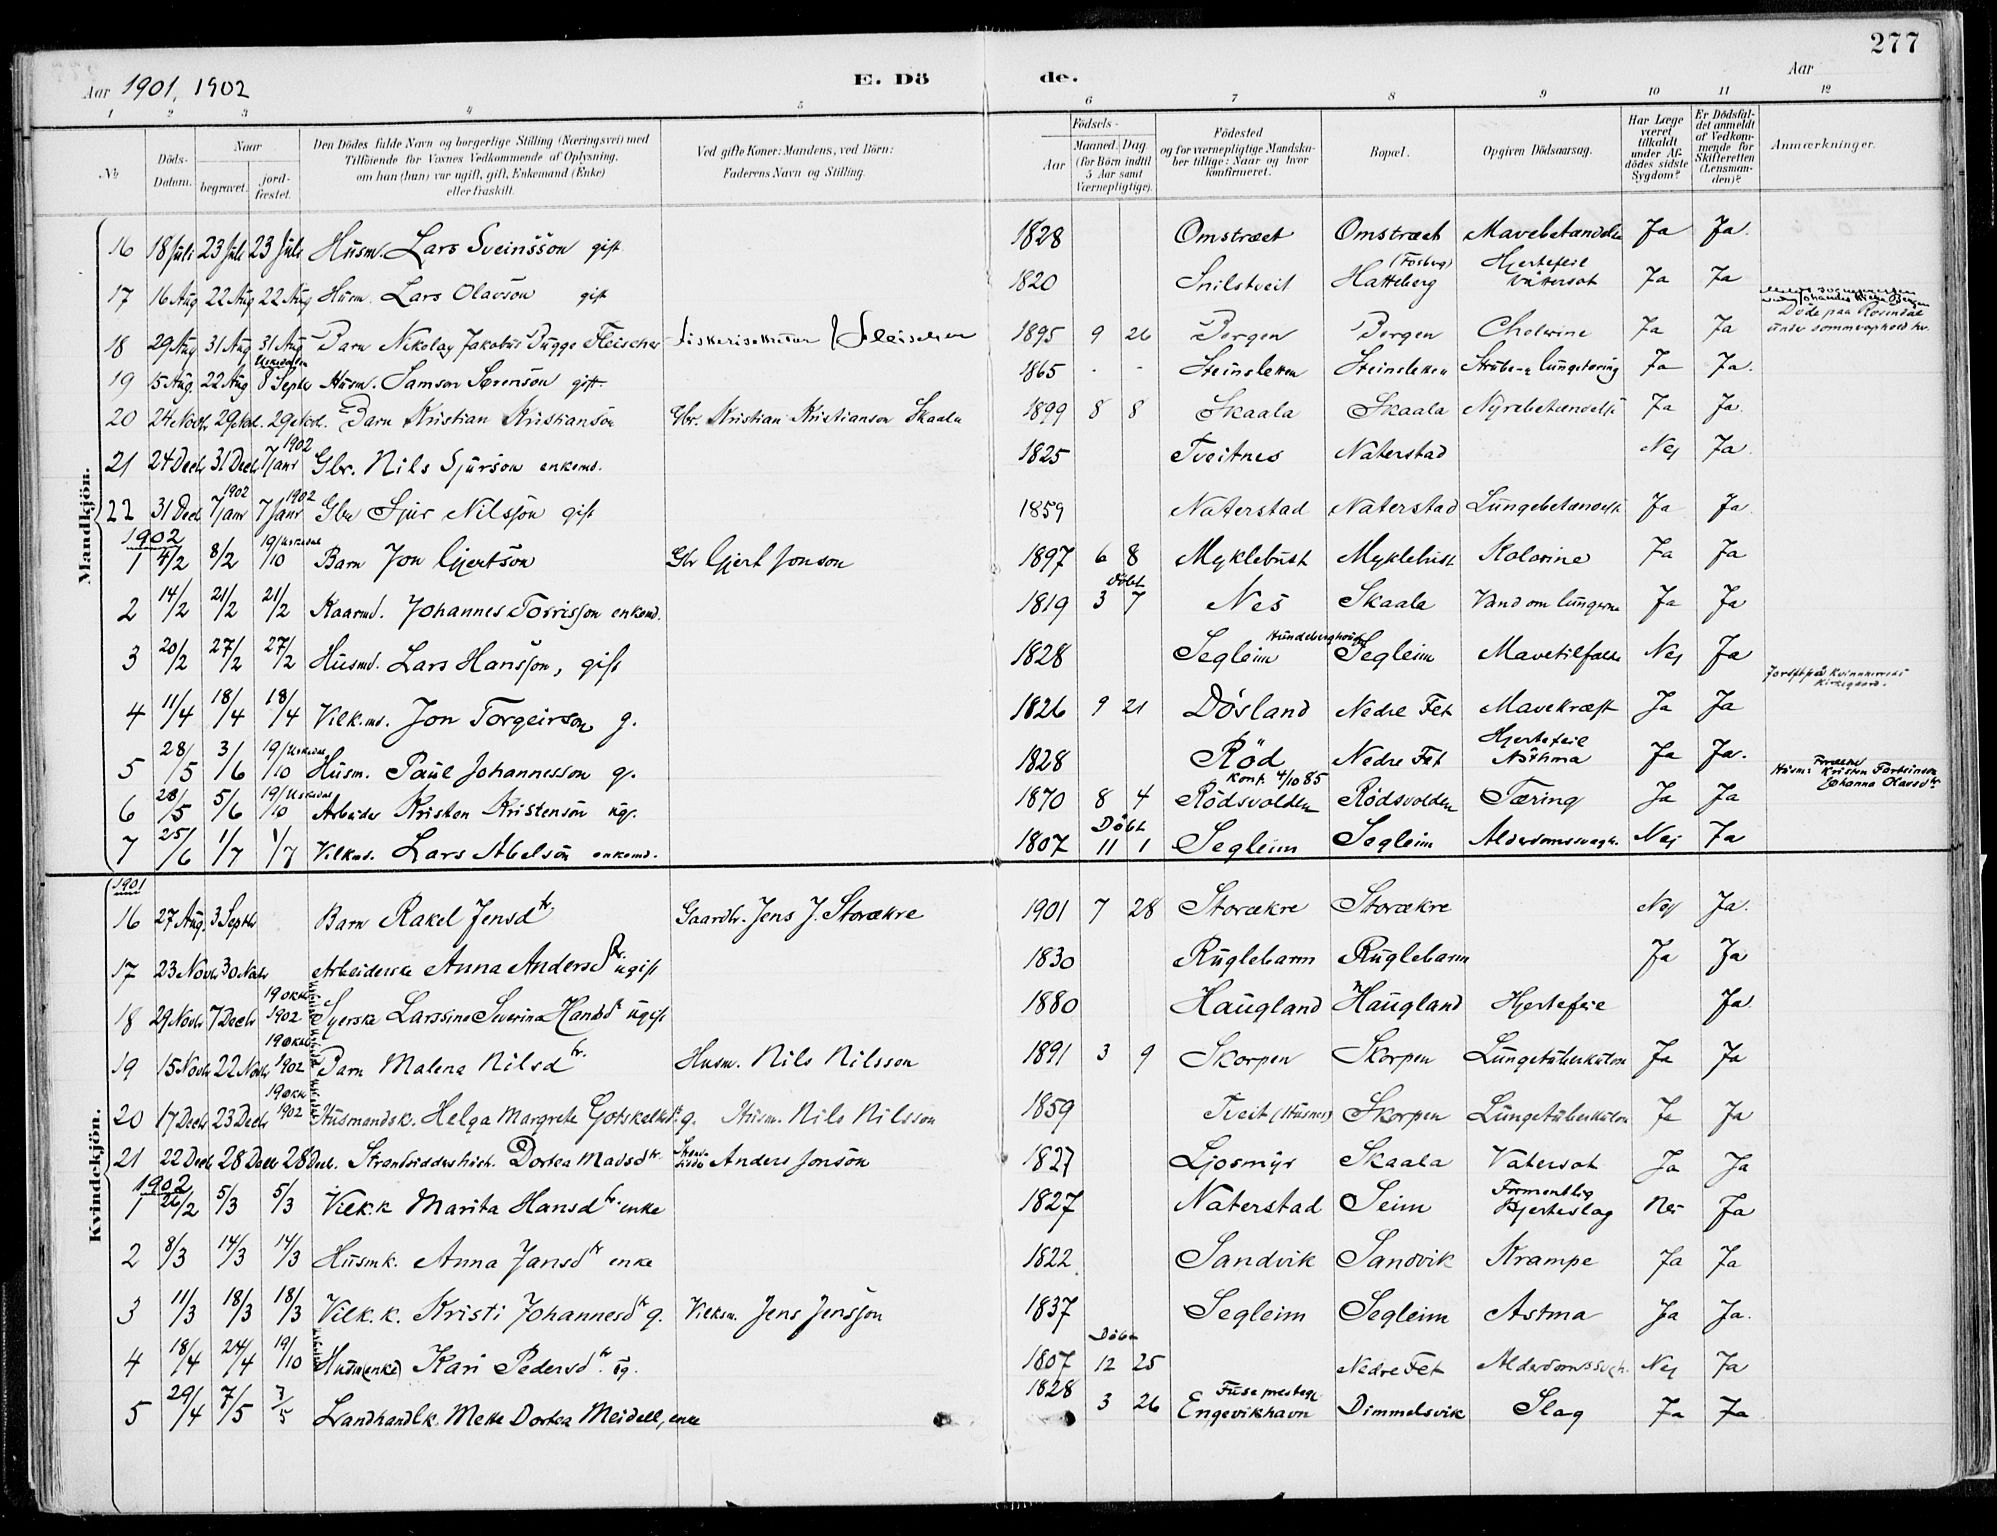 277
Aar 1901, 1902 E. Dö de. Aar
1 2 3 4 5 6 7 8 9 10 11 12
No Döds-Datum. Naar begravet. jordfæstet. Den Dödes fulde Navn og borgerlige Stilling (Næringsvei) med Tilföiende for Voxnes Vedkommende af Oplysning, om han (hun) var ugift, gift, Enkemand (Enke) eller fraskilt. Ved gifte Koner: Mandens, ved Börn: Faderens Navn og Stilling. Födsels- Aar Maaned. Dag (for Börn indtil 5 Aar samt Værnepligtige). Födested og for værnepligtige Mandskaber tillige: Naar og hvor konfirmeret. Bopæl. Opgiven Dödsaarsag. Har Læge været tilkaldt under Afdödes sidste Sygdom? Er Dödsfaldet anmeldt af Vedkommende for Skifteretten (Lensmanden)? Anmærkninger.
Mandkjön.
16 18 Juli 23 Juli 23 Juli Husm. Lars Sveinsson gift 1828 Omstræet Omstræet Mavebetændelse Ja Ja.
17 16 Aug 22 Aug 22 Aug Husm. Lars Olavson gift 1820 Snilstveit Hatteberg (Fosberg) Hjertefeil Vattersot Ja Ja
18 29 Aug 31 Aug 31 Aug Barn Nikolay Jakobus Bugge Fleischer Fiskerisekretær Fleischer 1895 9 26 Bergen Bergen Cholerine Ja Ja Döde paa Rosendal under sommerophold her.
19 15 Aug. 22 Aug 8 Septr Uskedalen Husm. Samson Sörenson gift 1865 - - Steinsletten Steinsletten Strube- & lungetæring Ja Ja.
20 24 Novbr 29 29 Barn Kristian Kristianson Gbr. Kristian Kristianson Skaala 1899 8 8 Skaala Skaala Nyrebetændelse Ja Ja.
21 24 Decb 31 Decb 7 Janr 1902 Gbr. Nils Sjurson enkemd. 1825 Tveitnes Naterstad Nej Ja.
22 31 Dec 7 Janr 1902 7 Janr 1902 Gbr Sjur Nilsson gift 1859 Naterstad Naterstad Lungebetændelse Ja Ja.
1902
1 4/2 8/2 19/10 Uskedal Barn Jon Gjertson Gbr Gjert Jonson 1897 6 8 Myklebust Myklebust Kolerine Ja Ja
2 14/2 21/2 21/2 Kaarmd. Johannes Torrisson enkemd. 1819 Döbt 3 7 Nes Skaala Vand om lungerne Ja Ja
3 20/2 27/2 27/2 Husmd. Lars Hansson, gift 1828 Segleim Segleim Mavetilfælde Nej Ja
4 11/4 18/4 18/4 Vilk.md. Jon Torgeirson g. 1826 9 21 Dösland Nedre Fet Mavekræft Ja Ja Jordf. på Kvinnherreds Kirkegaard.
5 28/5 3/6 19/10 Uskedal Husm. Paul Johannesson g. 1828 Röd Nedre Fet Hjertefeil Asthma Ja Ja.
6 28/5 5/6 19/10 Uskedal Arbeider Kristen Kristenson ug. 1870 8 4 Rödsvolden konf. 4/10 85 Rödsvolden Tæring Ja Ja Forældre Husm: Kristen Johanna Olavsdtr
7 25/6 1/7 1/7 Vilkmd. Lars Abelson enkemd. 1807 Döbt 11 1 Segleim Segleim Alderdomssvagh. Nej Ja
Kvindekjön.
1901
16 27 Aug. 3 Septbr Barn Rakel Jensdtr. Gaardbr. Jens J. Storækre 1901 7 28 Storækre Storækre Nej Ja.
17 23 Novbr 30 Novbr Arbeiderske Anna Andersdtr. ugift 1830 Ruglebarm Ruglebarm Ja Ja
18 29 Novbr 7 Decbr 19 Oktb 1902 Syerske Larssine Severina Hansdtr ugift 1880 Haugland Haugland Hjertefeil Ja
19 15 Novbr 22 Novbr 19 Oktb 1902 Barn Malena Nilsdtr. Husm. Nils Nilsson 1891 3 9 Skorpen Skorpen Lungetuberkulose Ja Ja
20 17 Decbr 23 Decbr 19 Oktb 1902 Husmandsk. Helga Margrete Gotskalksdtr g. Husm. Nils Nilsson 1859 Tveit (Husnes) Skorpen Lungetuberkulose Ja Ja
21 22 Decb 28 Decb 28 Decb. Strandsidderske Dortea Madsdtr Anders Jonson 1827 Ljosmyr Skaala Vatersot Ja Ja
1902
1 26/2 5/3 5/3 Vilk.k Marita Hansdtr. enke 1827 Naterstad Seim Formentlig Hjerteslag Nei Ja
2 8/3 14/3 14/3 Husmk. Anna Jansdtr enke 1822 Sandvik Sandvik Krampe Ja Ja
3 11/3 18/3 18/3 Vilk.k. Kristi Johannesdtr g. Vilksm. Jens Jensson 1837 Segleim Segleim Astma Ja Ja.
4 18/4 24/4 19/10 Husm(enke) Kari Pedersdtr. ug. 1807 Döbt 12 25 Nedre Fet Alderdomssvgh. Nej Ja
5 29/4 7/5 7/5 Landhandlk. Mette Dortea Meidell, enke 1828 3 26 Fuse prestegj. Engevikhavn Dimmelsvik Slag Ja Ja